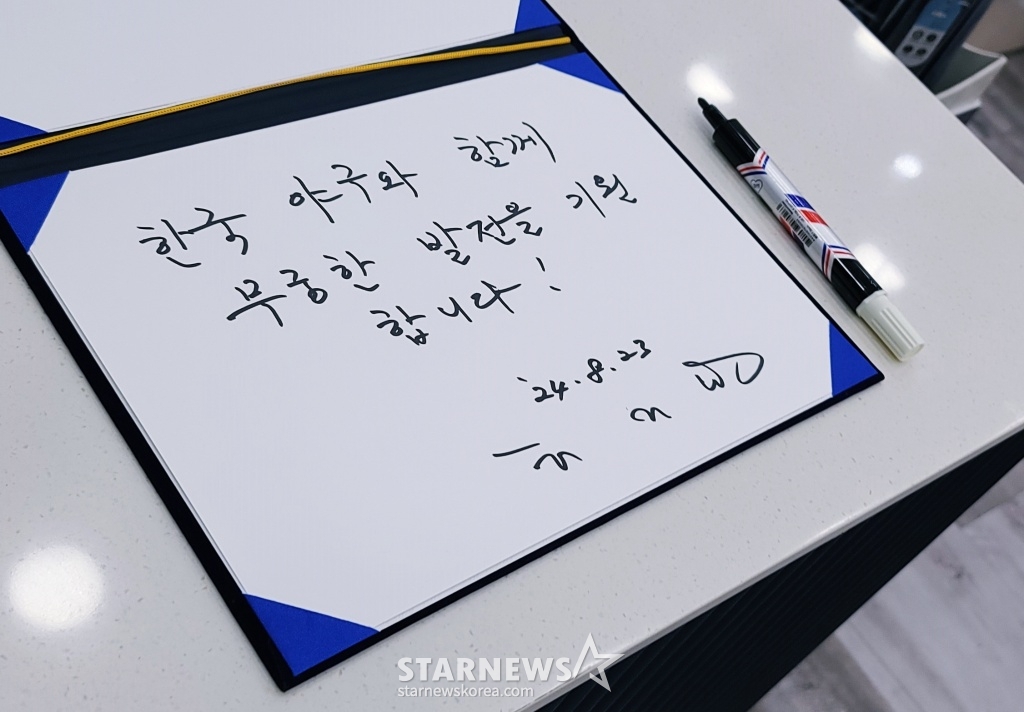 한국 야구와 함께
무궁한 발전을 기원
합니다!
'24.8.23
STARNEWS
starnewskorea.com